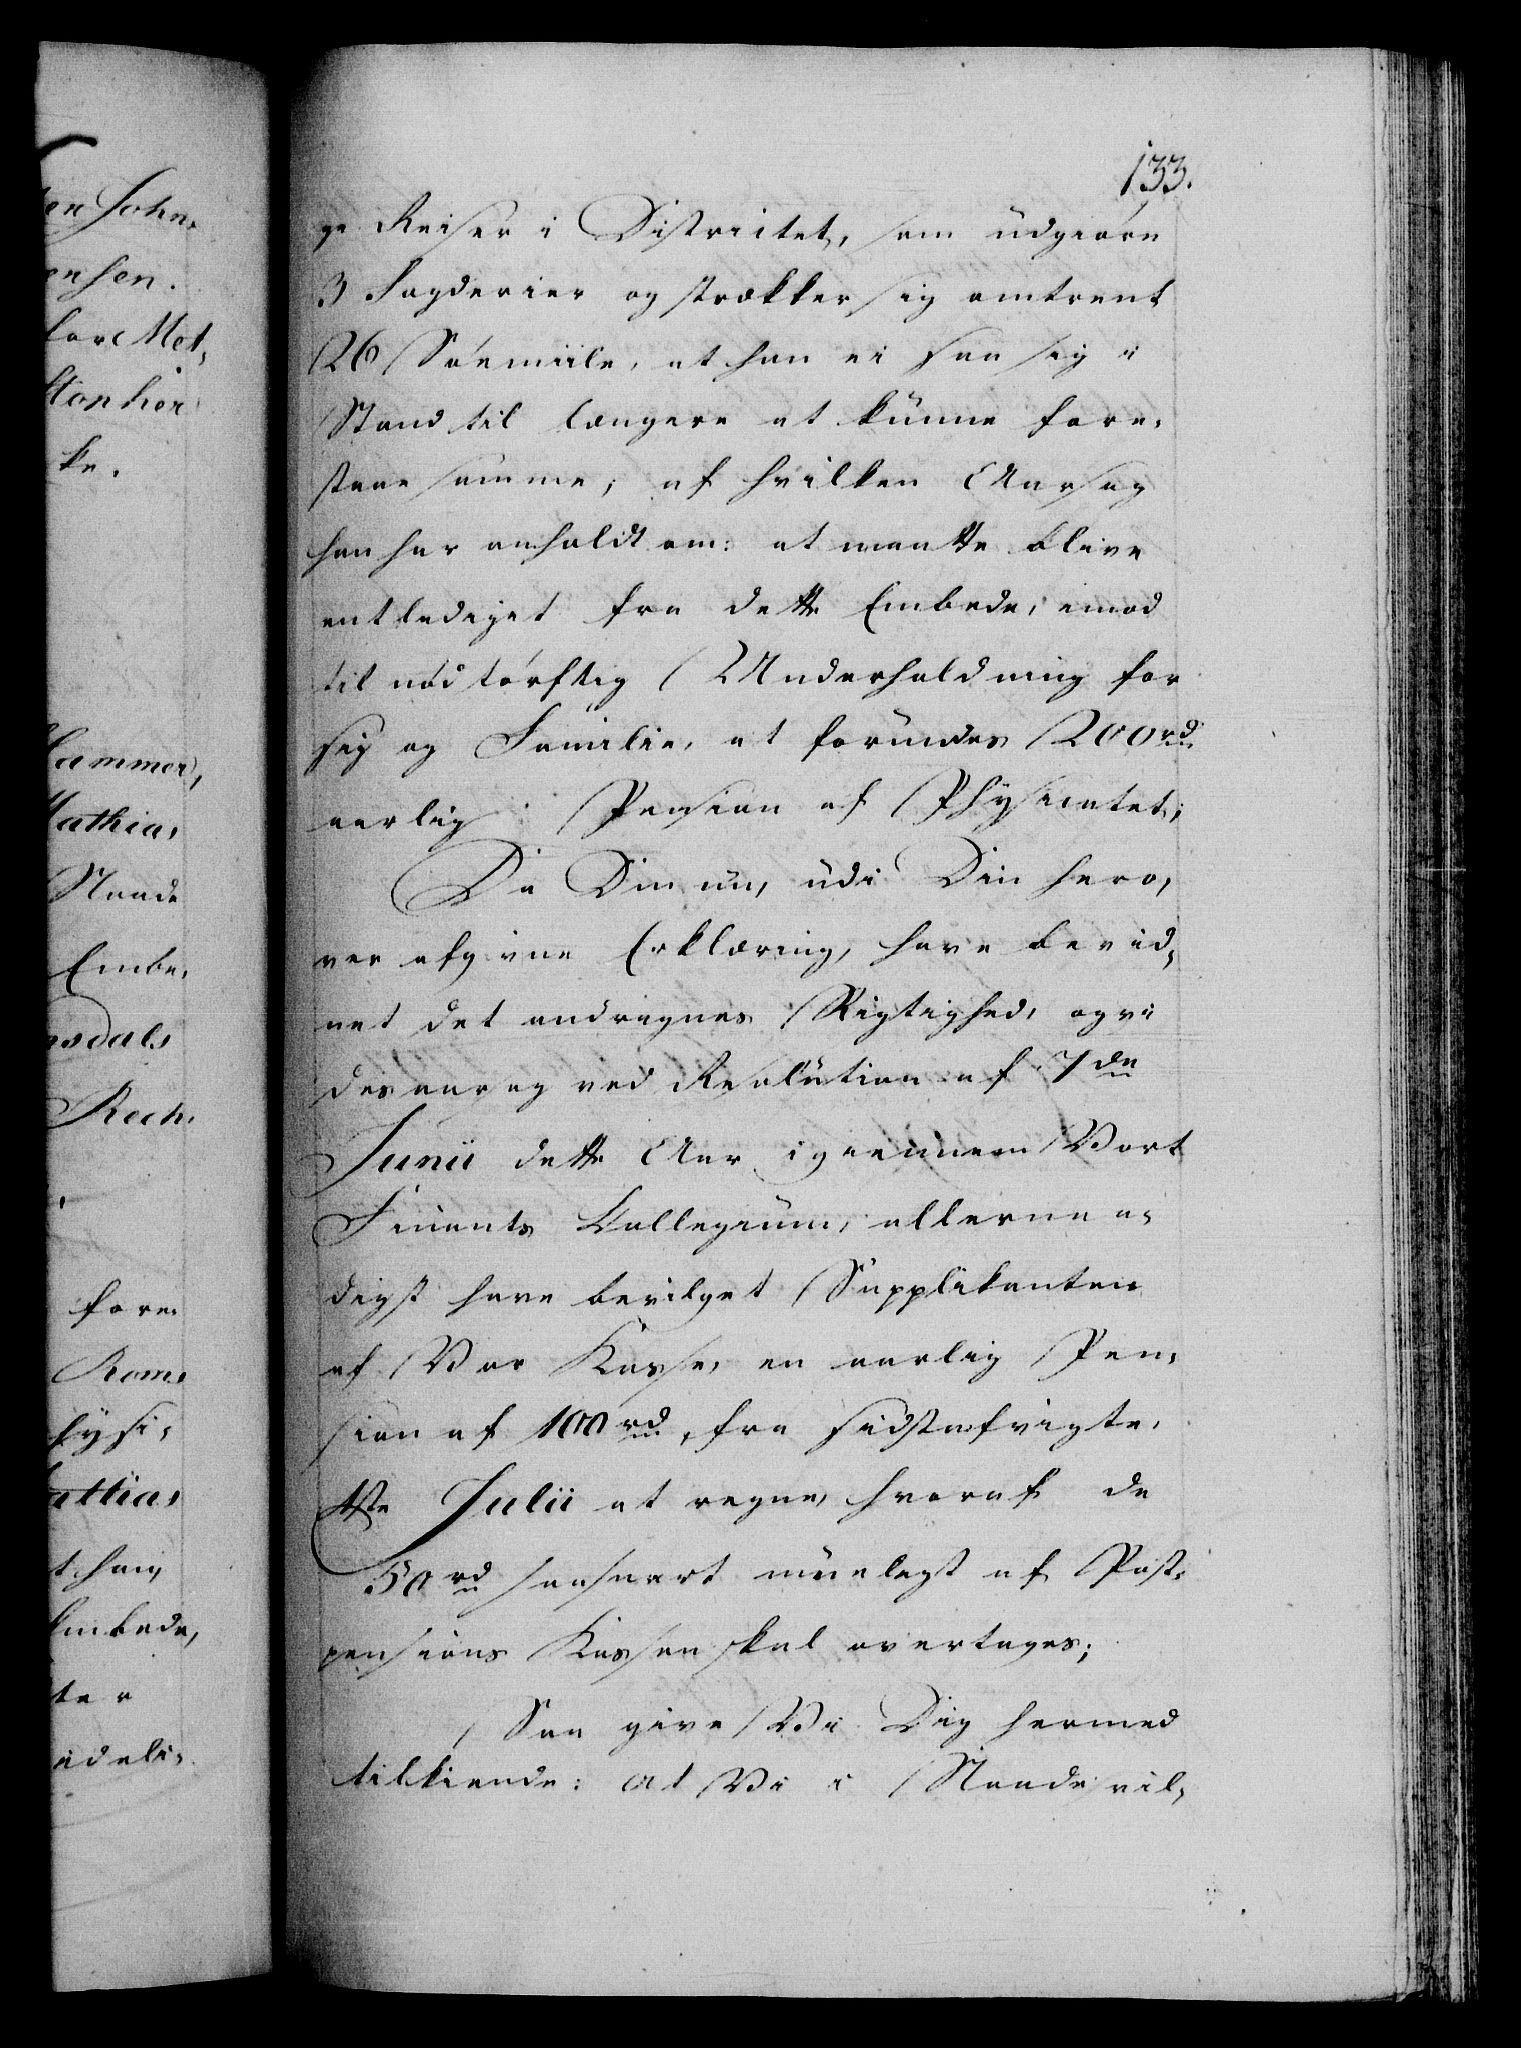 133.
ge Reiser i Districtet, som udgiøre
3 Fogderier og strækker sig omtrent
26 Søemiile, at han ei saa sig i
Stand til længere at kunne fore-
staae samme, af hvilken Aarsag
han har anholdt om: at maatte blive
entlediget fra dette Embede, imod
til nødtørftig Underholdning for
sig og Familie, at forundes 200 rd
aarlig Pension af Physicatet;
Da Du nu, udi Din hero-
ver afgivne Erklæring, have bevid-
net det andragnes Rigtighed, og vi
desaarag ved Resolution af 7de
Junii dette Aar igiennem Vort
Finants Collegium, allernaa-
digst have bevilget Supplikanten
af Vor Kasse, en aarlig Pen-
sion af 100 rd, fra sidstafvigte
1ste Julii at regne, hvoraf de
50 rd saasnart mueligt af Post-
pensions Kassen skal overtages;
Saa give Vi Dig hermed
tilkiende: at Vi i Naade vil-
en John-
ensen.
lor Met-
ton her
ke.
Hammer,
Mathias
Naade
Embe-
msdals
Rech.
fore-
Roms
hysi-
attias
t han,
Embede,
ter
ideli-